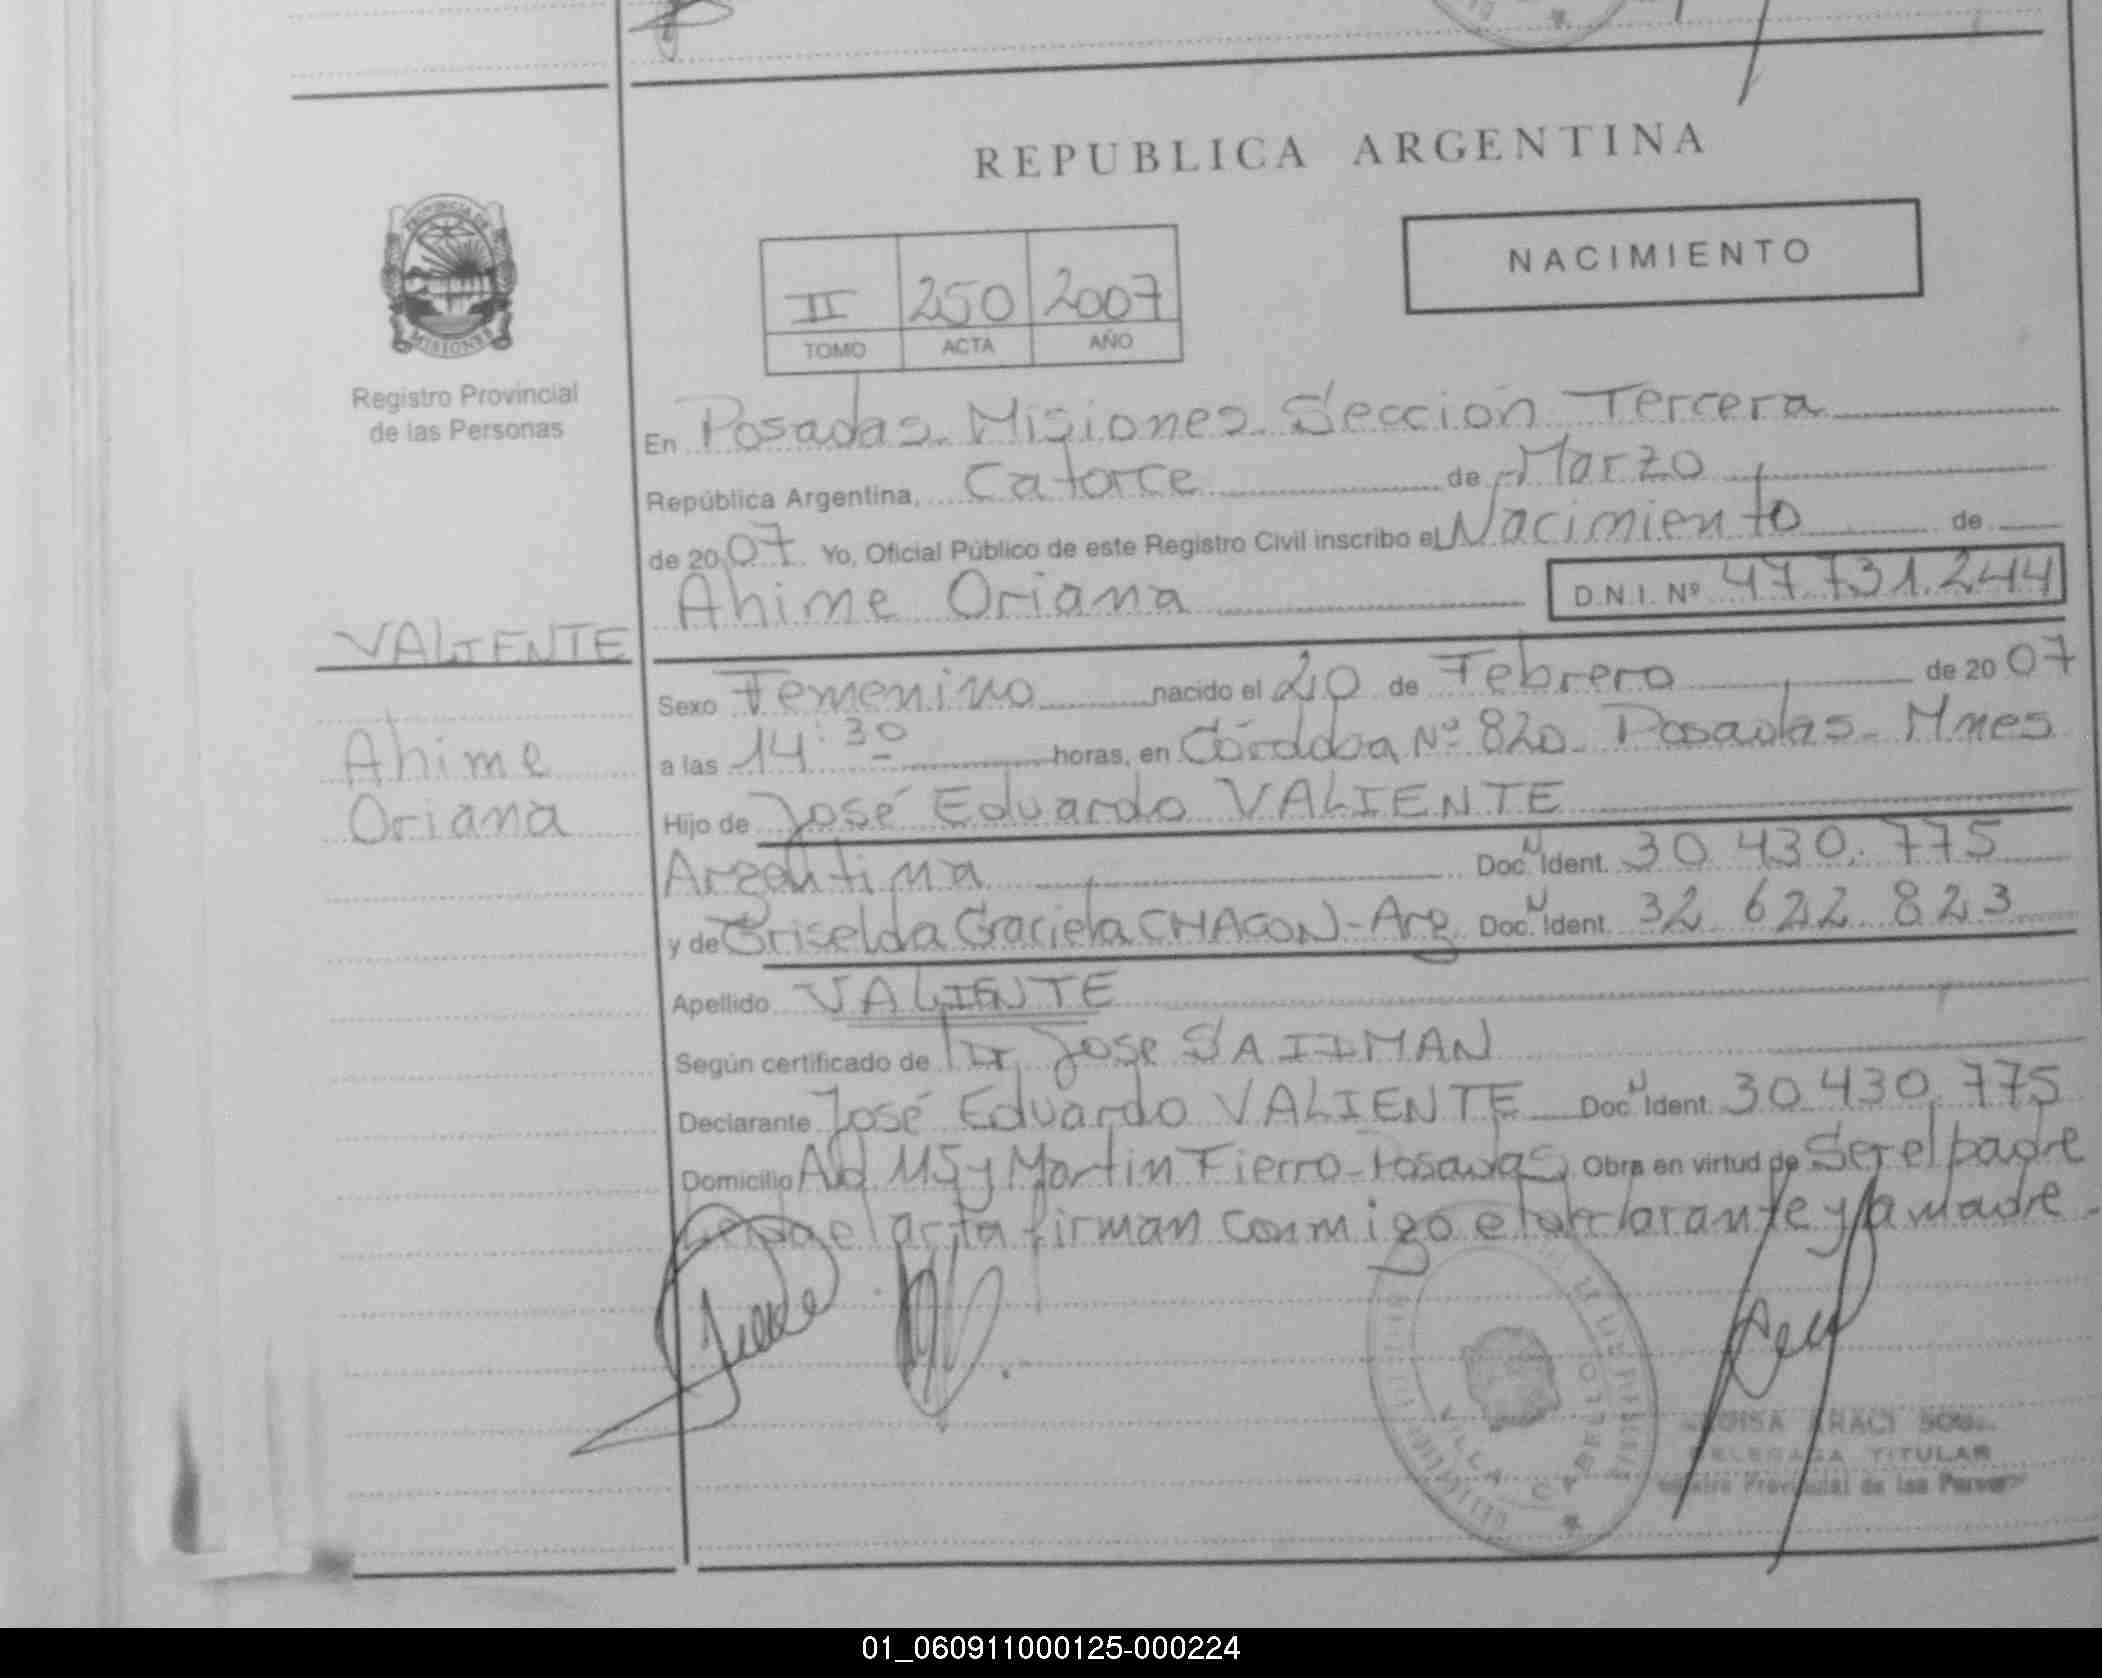 REPUBLICA ARGENTINA
PROVINCIA DE
MISIONES
Registro Provincial
de las Personas
NACIMIENTO
II 250 2007
TOMO ACTA AÑO
En Posadas Misiones Sección Tercera
República Argentina, Catorce de Marzo
de 2007 Yo, Oficial Público de este Registro Civil inscribo el Nacimiento de
Ahime Oriana D.N.I. Nº 47.731.244
VALIENTE
Ahime
Oriana
Sexo Femenino nacido el 20 de Febrero de 2007
a las 14:30 horas, en Córdoba Nº 820 Posadas - Mnes
Hijo de José Eduardo VALIENTE
Argentina Doc. Ident. 30.430.775
y de Griselda Graciela CHACON - Arg. Doc. Ident. 32 622 823
Apellido VALIENTE
Según certificado de Dr. Jose
Declarante José Eduardo VALIENTE Doc. Ident. 30.430.775
Domicilio y Martin Fierro - Posadas Obra en virtud de Ser el padre
el acta firman conmigo el declarante y la madre.
VILLA CABELLO
TITULAR
Provincial de las
01_060911000125-000224